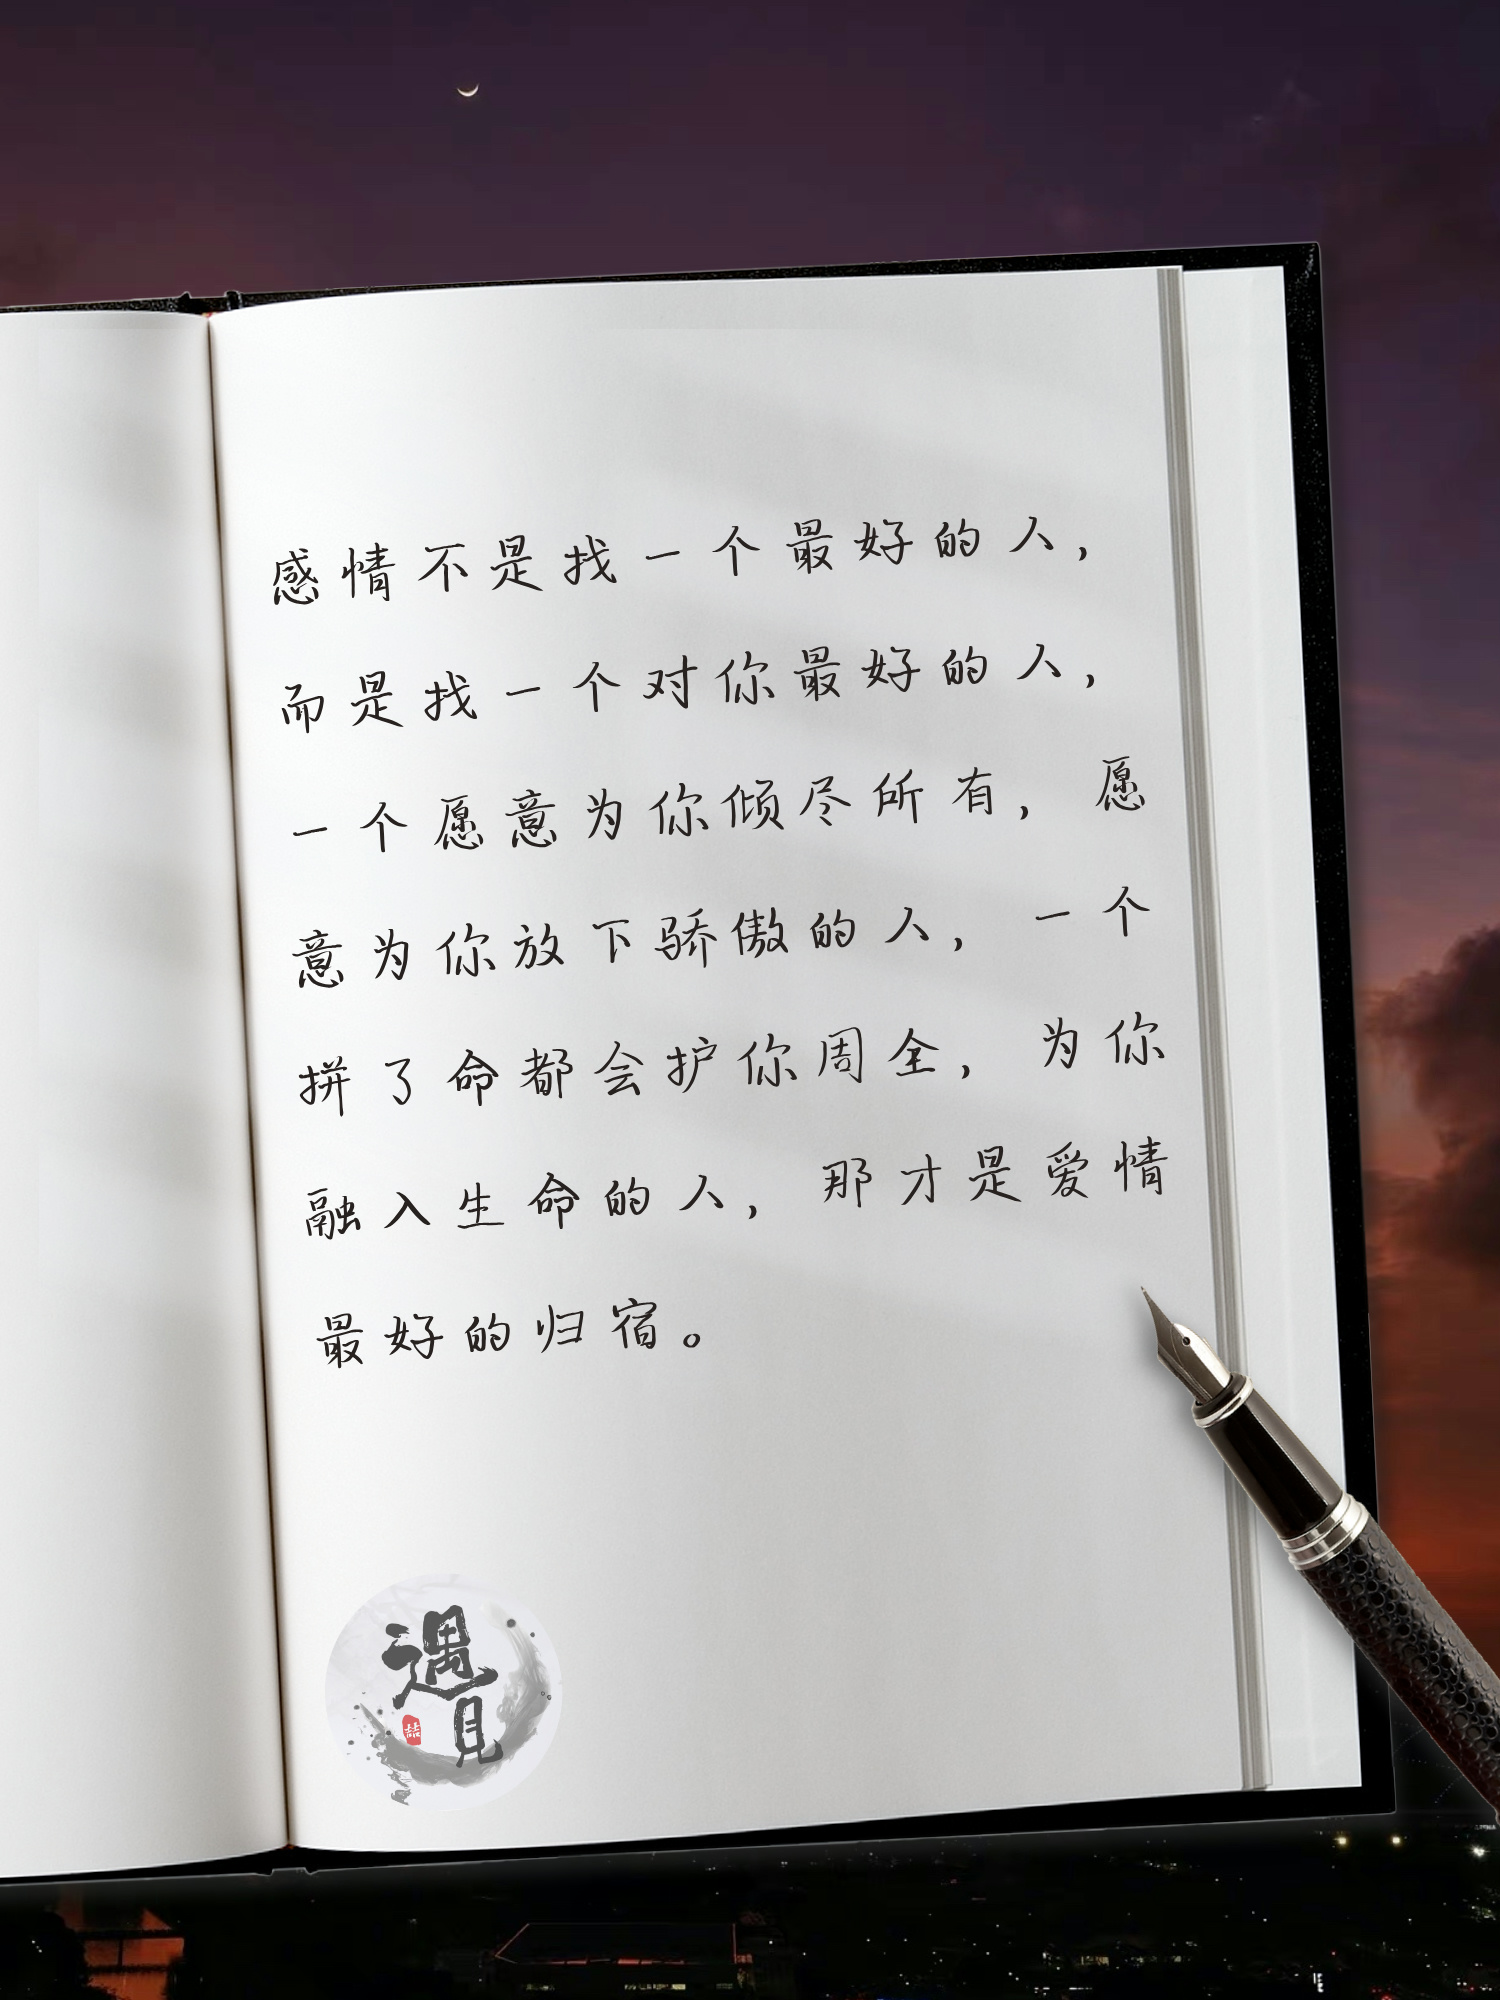 感情不是找一个最好的人，
而是找一个对你最好的人，
一个愿意为你倾尽所有，愿
意为你放下骄傲的人，一个
拼了命都会护你周全，为你
融入生命的人，那才是爱情
最好的归宿。
遇
見
喆